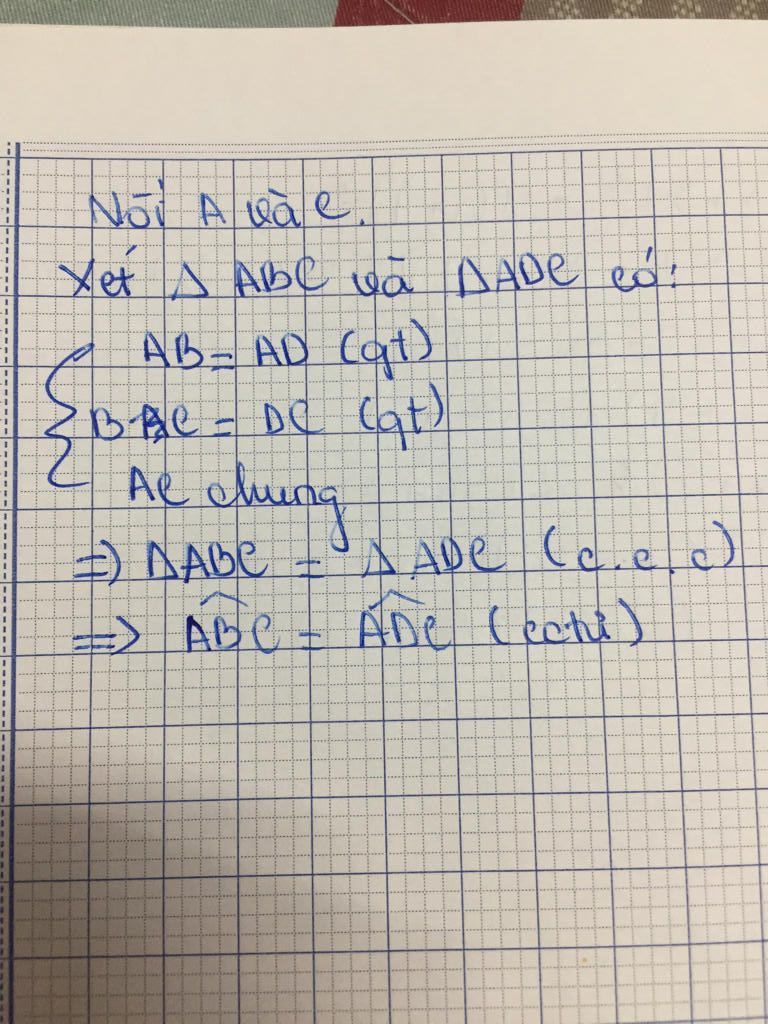 Nối A và C.
Xét Δ ABC và ΔADC có:
AB = AD (gt)
BC = DC (gt)
AC chung
=> ΔABC = Δ ADC (c.c.c)
=> \widehat{ABC} = \widehat{ADC}